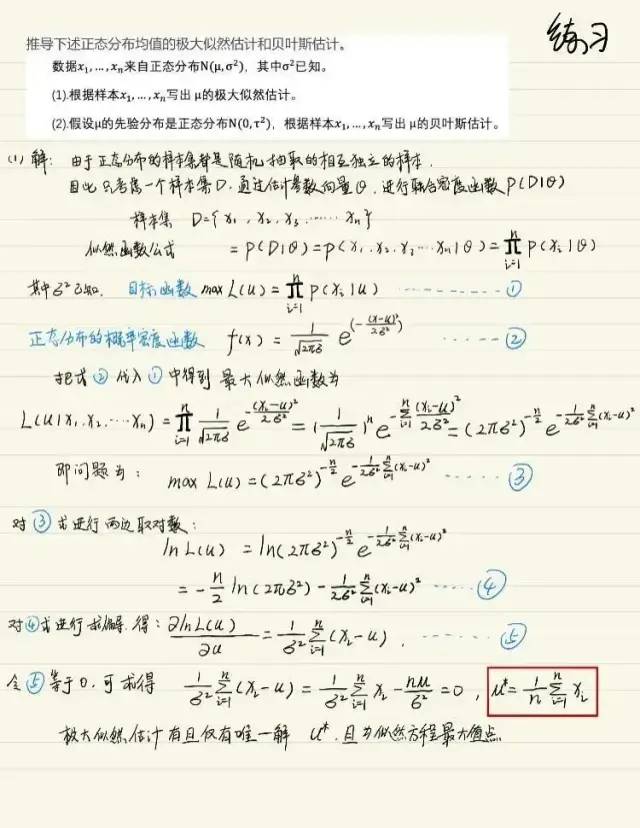 练习
推导下述正态分布均值的极大似然估计和贝叶斯估计。
数据x₁,…,xₙ来自正态分布N(μ,σ²)，其中σ²已知。
(1).根据样本x₁,…,xₙ写出 μ的极大似然估计。
(2).假设μ的先验分布是正态分布N(0,τ²)，根据样本x₁,…,xₙ写出 μ的贝叶斯估计。
(1) 解: 由于正态分布的样本集都是随机抽取的相互独立的样本.
因此 只考虑一个样本集D. 通过估计参数向量θ, 进行联合密度函数 P(D|θ)
样本集 D={x₁, x₂, x₃ …… xₙ}
似然函数公式 = P(D|θ) = P(x₁, x₂, x₃ … xₙ|θ) = ∏ᵢ₌₁ⁿ P(xᵢ|θ)
其中σ²已知. 目标函数 max L(u) = ∏ᵢ₌₁ⁿ P(xᵢ|u) ------ ①
正态分布的概率密度函数 f(x) = 1/(√(2π)σ) e^(-(x-u)²/(2σ²)) ------ ②
把式②代入①中得到 最大似然函数为
L(u|x₁,x₂,…xₙ) = ∏ᵢ₌₁ⁿ 1/(√(2π)σ) e^(-(xᵢ-u)²/(2σ²)) = (1/(√(2π)σ))ⁿ e^(-∑ᵢ₌₁ⁿ (xᵢ-u)²/(2σ²)) = (2πσ²)^(-n/2) e^(-1/(2σ²) ∑ᵢ₌₁ⁿ(xᵢ-u)²)
即问题为: max L(u) = (2πσ²)^(-n/2) e^(-1/(2σ²) ∑ᵢ₌₁ⁿ(xᵢ-u)²) ------ ③
对③式进行两边取对数:
ln L(u) = ln(2πσ²)^(-n/2) e^(-1/(2σ²) ∑ᵢ₌₁ⁿ(xᵢ-u)²)
= -n/2 ln(2πσ²) - 1/(2σ²) ∑ᵢ₌₁ⁿ(xᵢ-u)² ------ ④
对④式进行求偏导. 得: ∂lnL(u)/∂u = 1/σ² ∑ᵢ₌₁ⁿ(xᵢ-u). ------ ⑤
令⑤等于0, 可求得 1/σ² ∑ᵢ₌₁ⁿ(xᵢ-u) = 1/σ² ∑ᵢ₌₁ⁿ xᵢ - nu/σ² = 0, u* = 1/n ∑ᵢ₌₁ⁿ xᵢ
极大似然估计有且仅有唯一解 u*. 且为似然方程最大值点